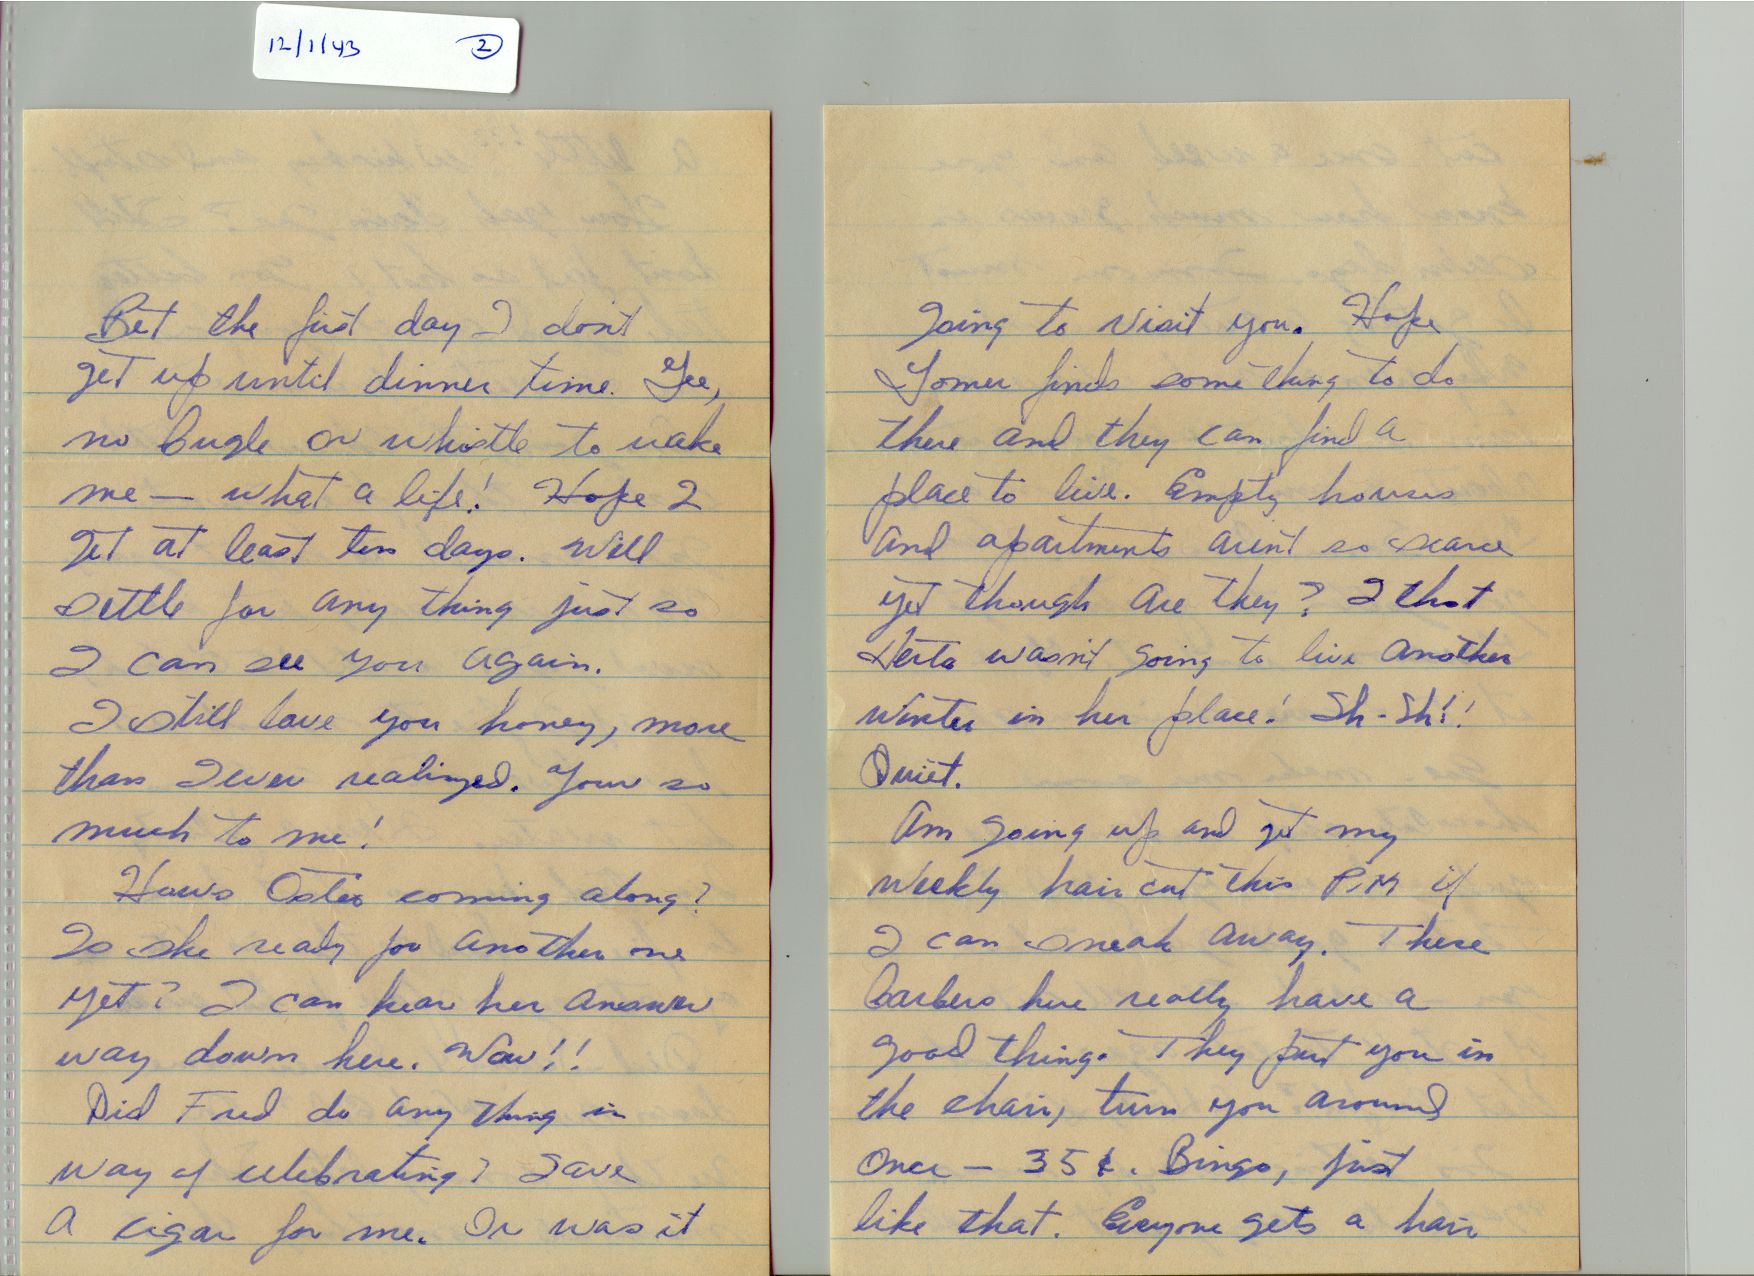 12/1/43 2
Bet the first day I don't
get up until dinner time. Gee,
no bugle or whistle to wake
me — what a life! Hope I
get at least ten days. Will
settle for any thing just so
I can see you again.
I still love you honey, more
than I ever realized. Your so
much to me!
Hows Osteo coming along?
Is she ready for another one
yet? I can hear her answer
way down here. Wow!!
Did Fred do any thing in
way of celebrating? Save
a cigar for me. Or was it
going to visit you. Hope
finds something to do
there and they can find a
place to live. Empty houses
and apartments aren't so scarce
yet though are they? I thot
Herta wasn't going to live another
winter in her place! Sh-Sh!!
Quiet.
Am going up and get my
weekly hair cut this P.M if
I can sneak away. These
barbers here really have a
good thing. They put you in
the chair, turn you around
once — 35¢. Bingo, just
like that. Everyone gets a hair